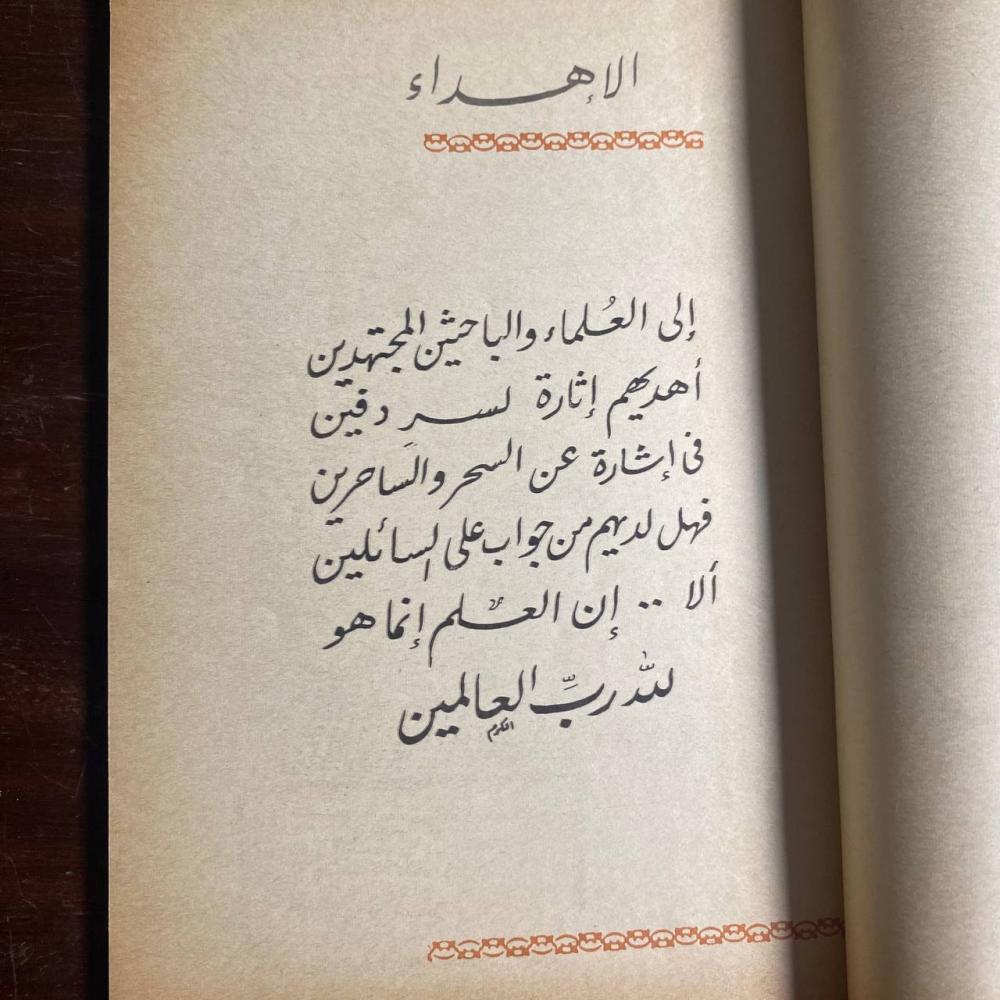 الإهداء
إلى العُلماء والباحثين المجتهدين
أهديهم إثارة لسرٍ دفين
فى إشارة عن السحر والسَاحرين
فهل لديهم من جواب على السائلين
ألا .. إن العلم إنما هو
لله ربِّ العالمين
اكرم